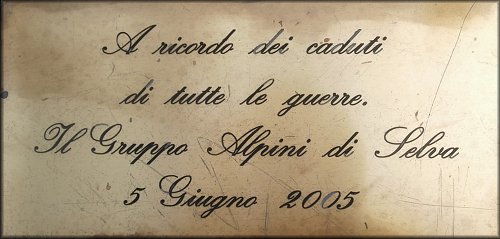 A ricordo dei caduti
di tutte le guerre.
Il Gruppo Alpini di Selva
5 Giugno 2005